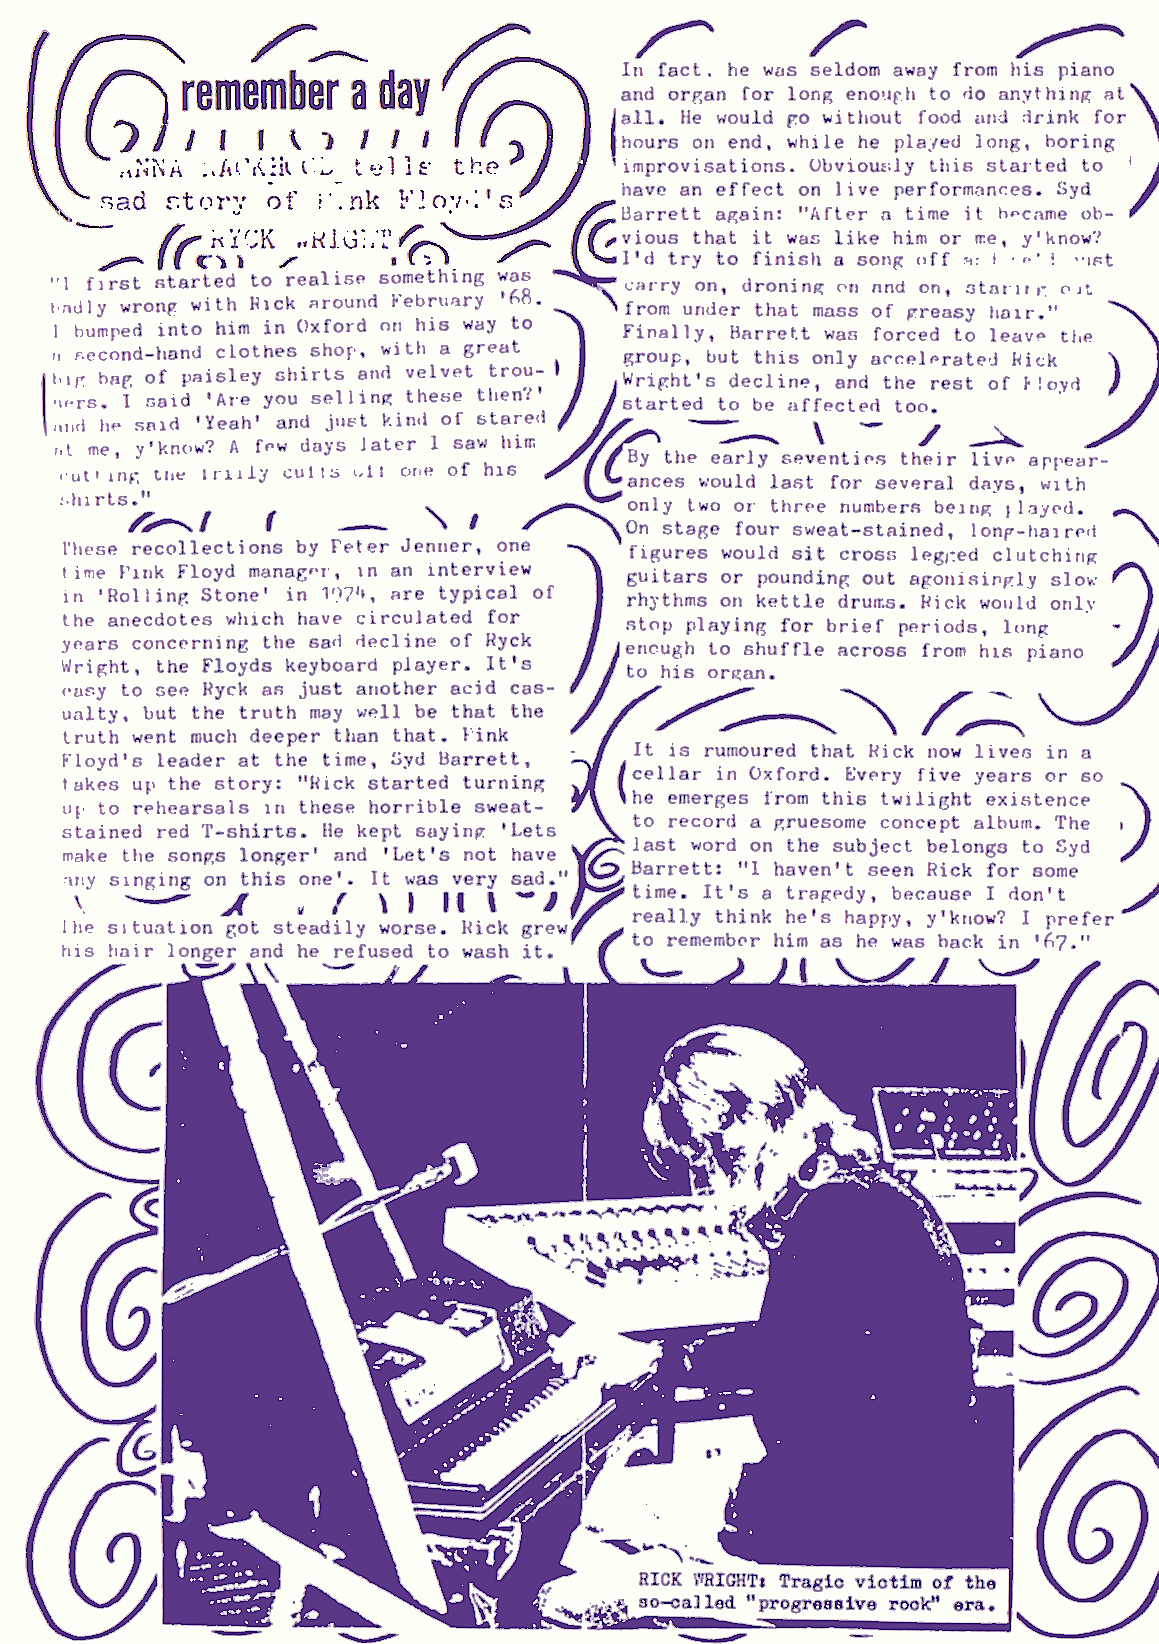 remember a day
ANNA tells the
sad story of Pink Floyd's
RYCK WRIGHT
"I first started to realise something was
badly wrong with Rick around February '68.
I bumped into him in Oxford on his way to
a second-hand clothes shop, with a great
big bag of paisley shirts and velvet trou-
sers. I said 'Are you selling these then?'
and he said 'Yeah' and just kind of stared
at me, y'know? A few days later I saw him
cutting the frilly cuffs off one of his
shirts."
These recollections by Peter Jenner, one
time Pink Floyd manager, in an interview
in 'Rolling Stone' in 1974, are typical of
the anecdotes which have circulated for
years concerning the sad decline of Ryck
Wright, the Floyds keyboard player. It's
easy to see Ryck as just another acid cas-
ualty, but the truth may well be that the
truth went much deeper than that. Pink
Floyd's leader at the time, Syd Barrett,
takes up the story: "Rick started turning
up to rehearsals in these horrible sweat-
stained red T-shirts. He kept saying 'Lets
make the songs longer' and 'Let's not have
any singing on this one'. It was very sad."
The situation got steadily worse. Rick grew
his hair longer and he refused to wash it.
In fact, he was seldom away from his piano
and organ for long enough to do anything at
all. He would go without food and drink for
hours on end, while he played long, boring
improvisations. Obviously this started to
have an effect on live performances. Syd
Barrett again: "After a time it became ob-
vious that it was like him or me, y'know?
I'd try to finish a song off and he'd just
carry on, droning on and on, staring out
from under that mass of greasy hair."
Finally, Barrett was forced to leave the
group, but this only accelerated Rick
Wright's decline, and the rest of Floyd
started to be affected too.
By the early seventies their live appear-
ances would last for several days, with
only two or three numbers being played.
On stage four sweat-stained, long-haired
figures would sit cross legged clutching
guitars or pounding out agonisingly slow
rhythms on kettle drums. Rick would only
stop playing for brief periods, long
enough to shuffle across from his piano
to his organ.
It is rumoured that Rick now lives in a
cellar in Oxford. Every five years or so
he emerges from this twilight existence
to record a gruesome concept album. The
last word on the subject belongs to Syd
Barrett: "I haven't seen Rick for some
time. It's a tragedy, because I don't
really think he's happy, y'know? I prefer
to remember him as he was back in '67."
RICK WRIGHT: Tragic victim of the
so-called "progressive rock" era.